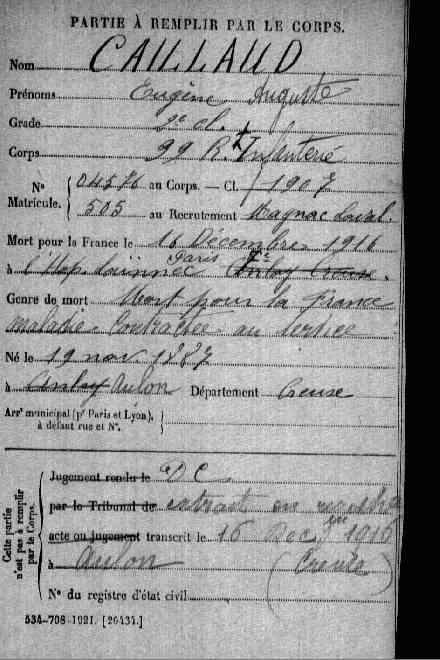 PARTIE À REMPLIR PAR LE CORPS.
Nom CAILLAUD
Prénoms Eugène Auguste
Grade 2e cl.
Corps 99 Rt Infanterie
No Matricule. { 04576 au Corps. — Cl. 1907
505 au Recrutement Magnac Laval.
Mort pour la France le 16 Décembre 1916
à l'Hop Paris
Genre de mort Mort pour la France
maladie contractée au service
Né le 19 nov 1887
à Aulon Département Creuse
Arrt municipal (pr Paris et Lyon), à défaut rue et No. }
Cette partie n'est pas à remplir par le Corps.
Jugement rendu le DC
par le Tribunal de extrait
acte ou jugement transcrit le 16 Dec 1916
à Aulon (Creuse)
No du registre d'état civil
534-708-1921. [26434.]